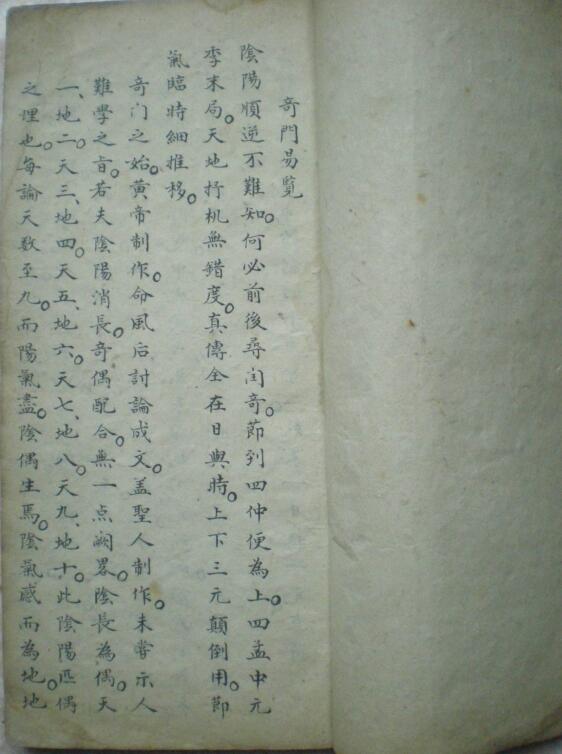 奇門易覧
陰陽順逆不難知。何必前後尋闰奇。節到四仲便為上。四孟中元
季末局。天地抒机無錯度。真傳全在日與時。上下三元顛倒用。節
氣臨時細推移。
奇门之始。黄帝制作。命風后討論成文。盖聖人制作。未嘗示人
難學之旨。若夫陰陽消長。奇偶配合。無一点闕畧。陰長為偶。天
一、地二。天三、地四。天五、地六。天七、地八。天九、地十。此陰陽匹偶
之理也。每論天数至九。而陽氣盡。陰偶生焉。陰氣感而為地。地